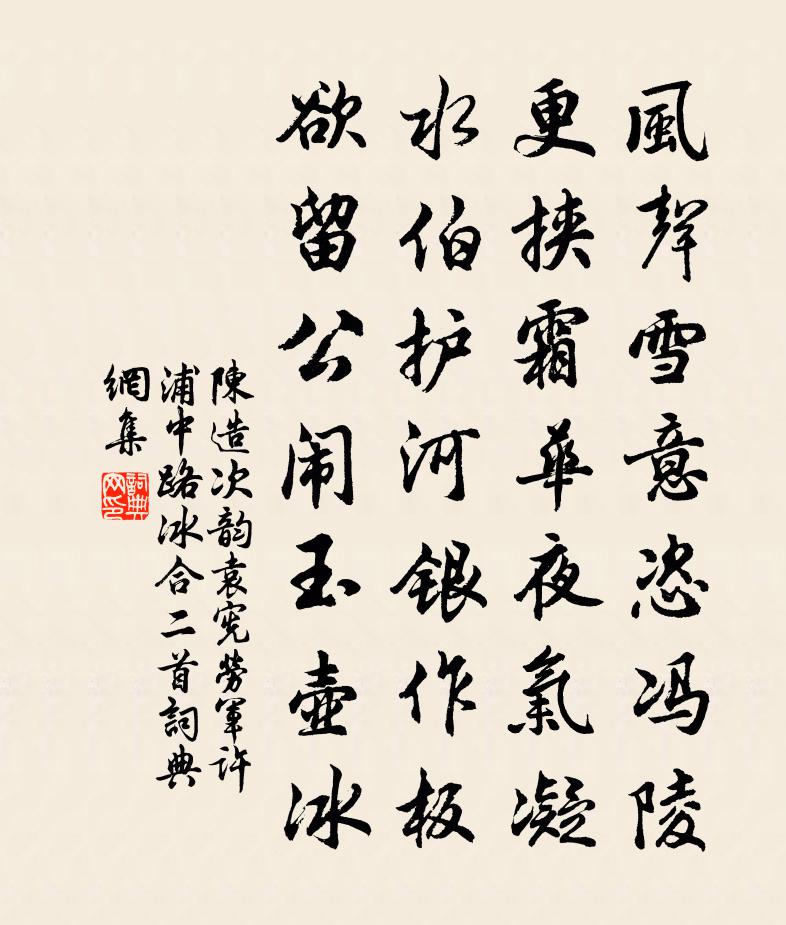 風聲雪意恣冯陵
更挟霜華夜氣凝
水伯护河银作板
欲留公闹玉壺冰
陳造次韵袁宪勞軍許
浦中路冰合二首詞典
網集
詞典网印